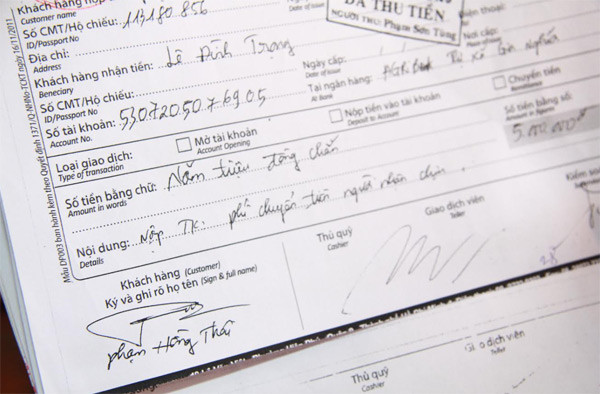 Khách hàng
Customer name
Số CMT/Hộ chiếu: 113180856
ID/Passport No
ĐÃ THU TIỀN
NGƯỜI THU: Phạm Sơn Tùng
Địa chỉ:
Address
Khách hàng nhận tiền: Lê Đình Trọng
Beneciary
Số CMT/Hộ chiếu:
ID/Passport No
Ngày cấp:
Date of issue
Nơi cấp:
Place of issue
Số tài khoản: 5307205076905
Account No.
Tại ngân hàng:
At Bank
Loại giao dịch:
Type of transaction
Mở tài khoản
Account Opening
Nộp tiền vào tài khoản
Deposit to Account
Chuyển tiền
Remittance
Số tiền bằng chữ: Năm triệu đồng chẵn
Amount in words
Số tiền bằng số:
Amount in figures
5.000.000đ
Nội dung: Nộp TK: phí chuyển tiền người nhận chịu.
Details
Khách hàng (Customer)
Ký và ghi rõ họ tên (Sign & full name)
Thủ quỹ
Cashier
Giao dịch viên
Teller
Kiểm soát
Phạm Hồng Thái
Mẫu DF003 ban hành kèm theo Quyết định 1371/QĐ-NHNo-TCKT ngày 16/11/2011
Thủ quỹ
Cashier
dịch viên
Teller